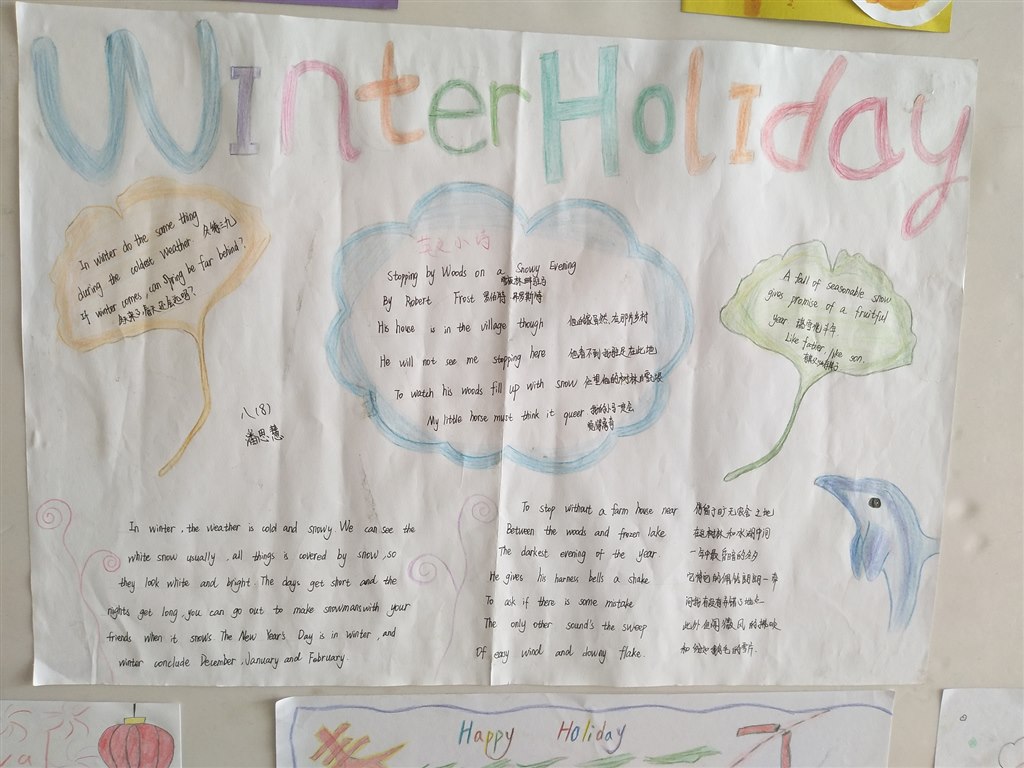 Winter Holiday
In winter do the same thing
during the coldest weather.
If winter comes, can Spring be far behind?
冬天来了,春天还会远吗?
八(8)
潘思慧
英文小诗
Stopping by Woods on a Snowy Evening
By Robert Frost 罗伯特·弗罗斯特
His house is in the village though
He will not see me stopping here
To watch his woods fill up with snow
My little horse must think it queer
A fall of seasonable snow
gives promise of a fruitful
year 瑞雪兆丰年.
Like father, like son.
In winter, the weather is cold and snowy We can see the
white snow usually, all things is covered by snow, so
they look white and bright. The days get short and the
nights get long you can go out to make snowmans with your
friends when it snows The New Year's Day is in winter, and
winter conclude December, January and February.
To stop without a farm house near
Between the woods and frozen lake 在这树林和冰湖中间
The darkest evening of the year. 一年中最昏暗的冬夕
He gives his harness bells a shake
To ask if there is some mistake
The only other sound's the sweep
Of easy wind and downy flake.
Happy Holiday